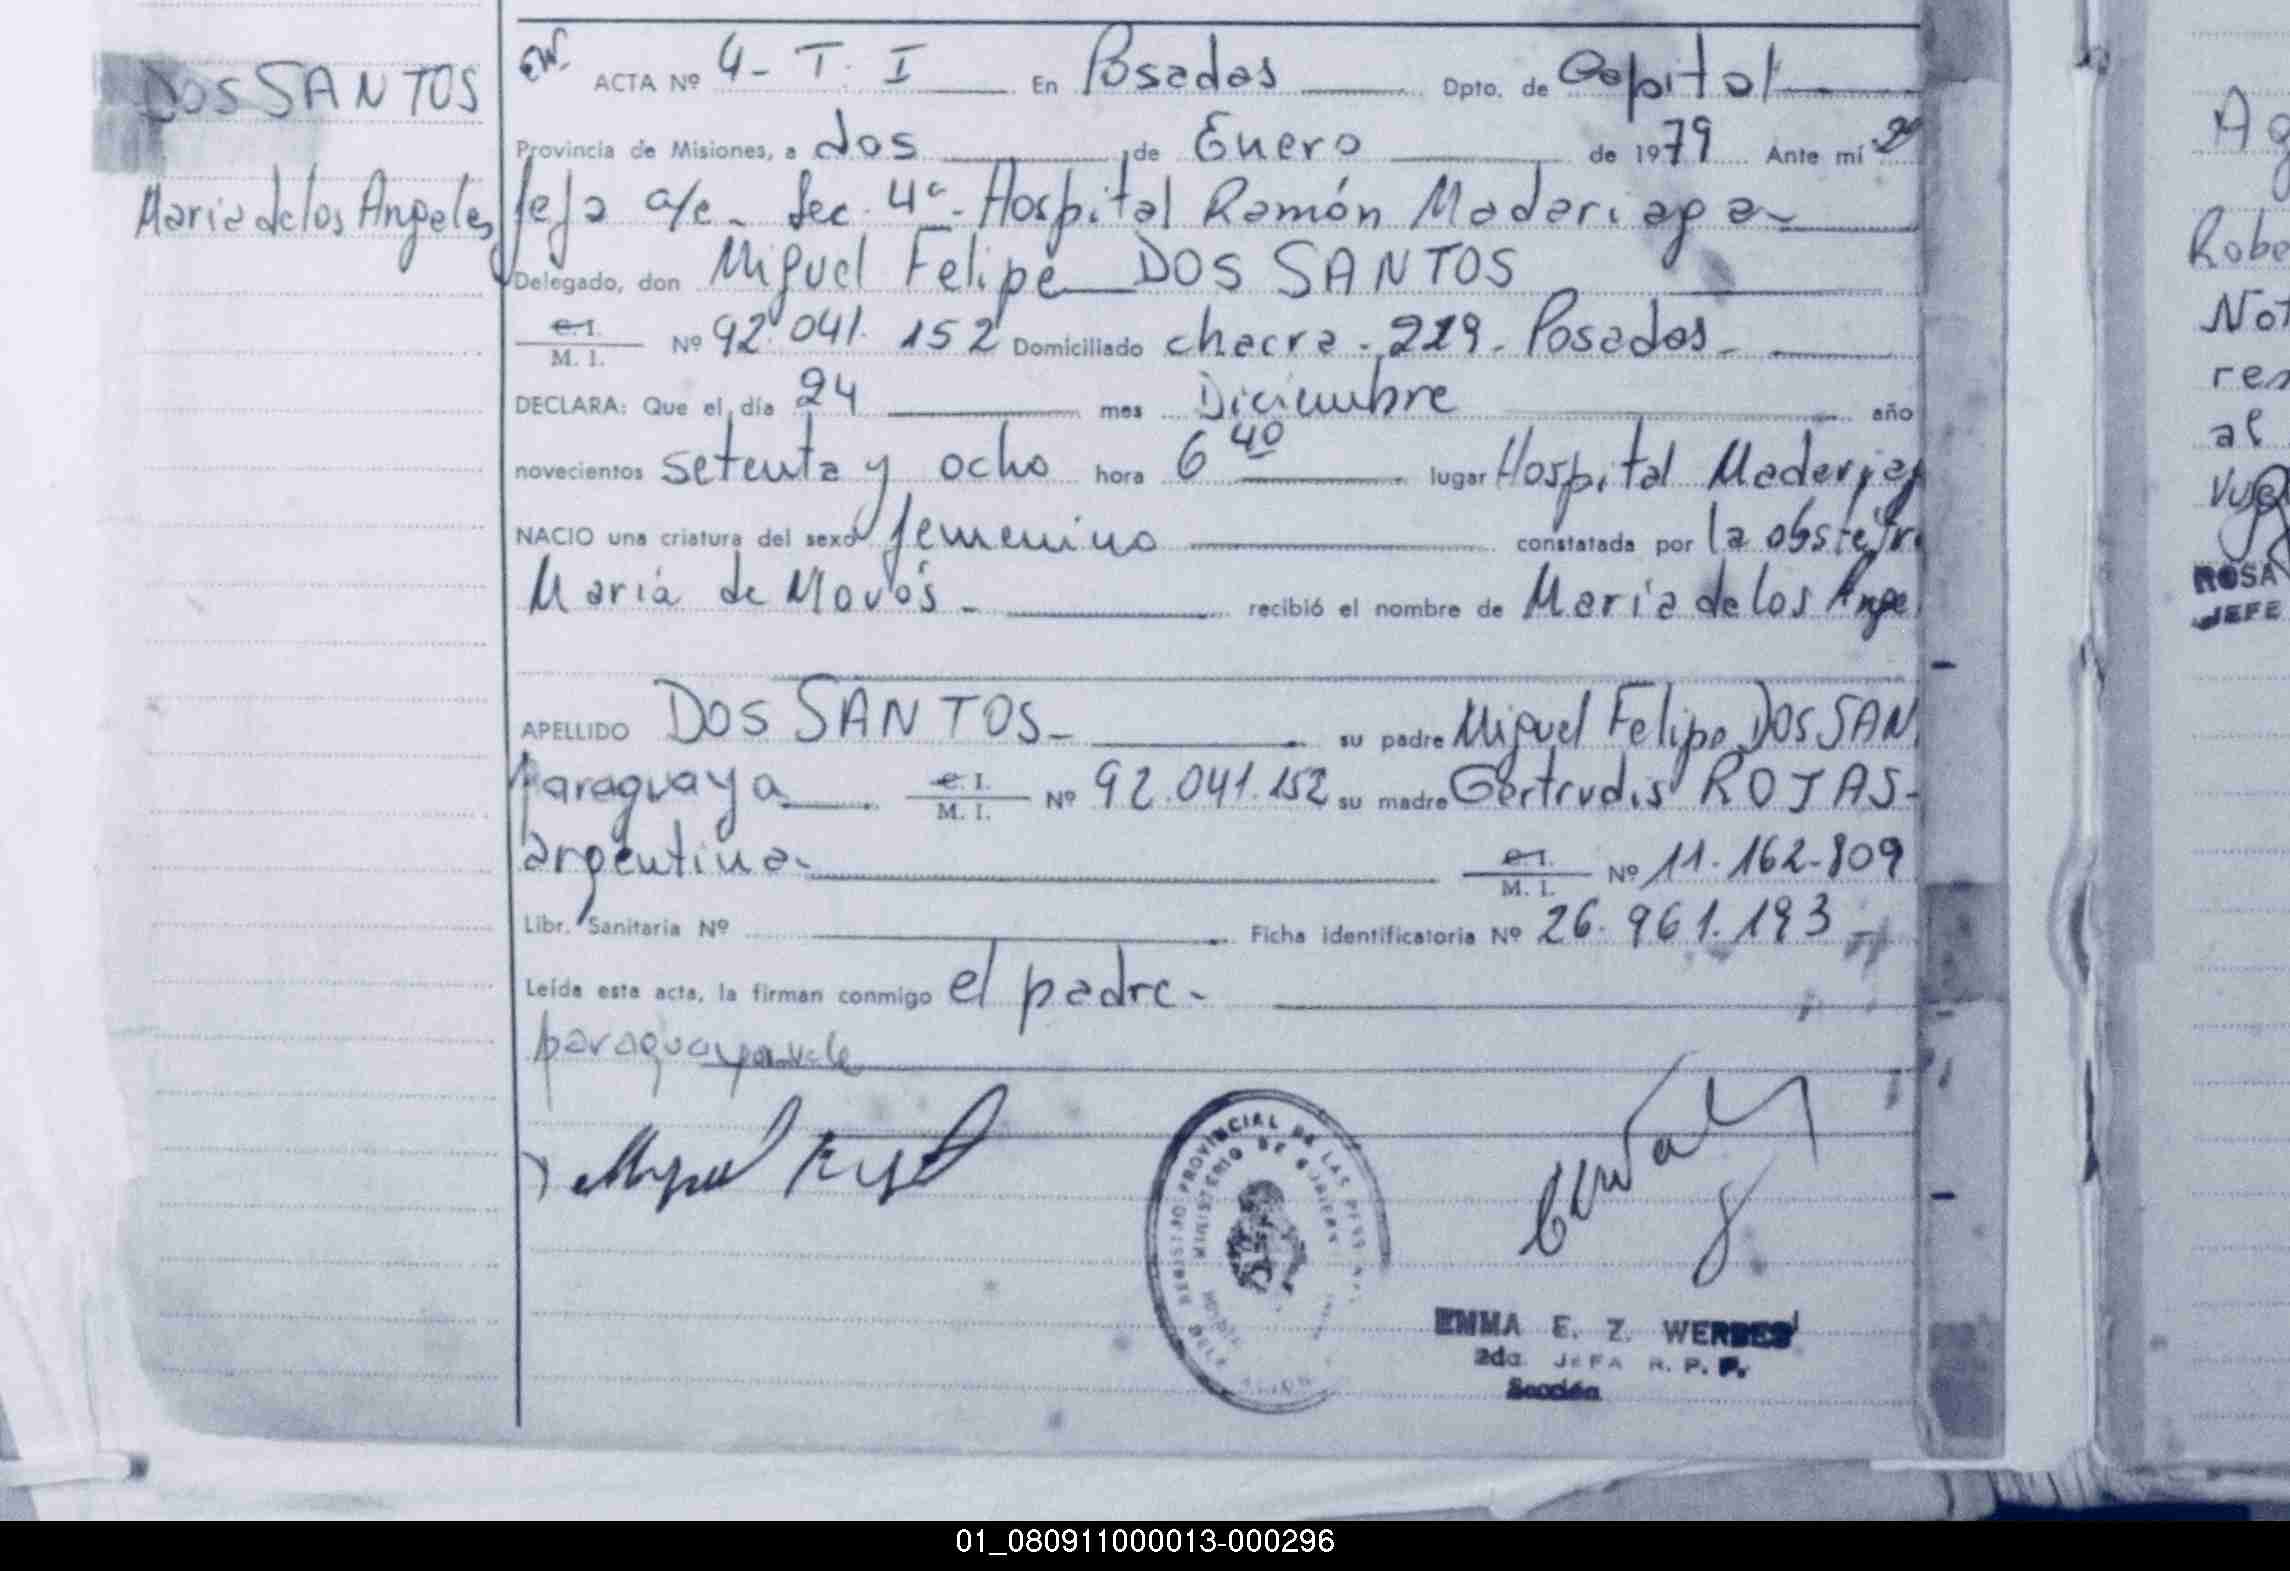 DOS SANTOS
Maria de los Angeles
ACTA Nº 4 - T. I En Posadas Dpto. de Capital
Provincia de Misiones, a dos de Enero de 1979 Ante mí
Jefa a/c - Sec. 4ª - Hospital Ramón Madariaga -
Delegado, don Miguel Felipe DOS SANTOS
C. I.
M. I. Nº 92.041.152 Domiciliado chacra - 229 - Posadas -
DECLARA: Que el día 24 mes Diciembre año
novecientos setenta y ocho hora 6 40 lugar Hospital Madariag
NACIO una criatura del sexo femenino constatada por la obstetr
Maria de recibió el nombre de Maria de los Angel
APELLIDO DOS SANTOS - su padre Miguel Felipe DOS SAN
paraguaya C. I.
M. I. Nº 92.041.152 su madre Gertrudis ROJAS -
argentina - C. I.
M. I. Nº 11.162.809
Libr. Sanitaria Nº Ficha identificatoria Nº 26.961.193 -
Leída esta acta, la firman conmigo el padre -
paraguaya vale
REGISTRO PROVINCIAL DE LAS PERSONAS
MINISTERIO DE GOBIERNO
EMMA E. Z. WERBES
2da. JEFA R. P. P.
Sección
Ag
Robe
Not
res
al
ROSA
JEFE
01_080911000013-000296